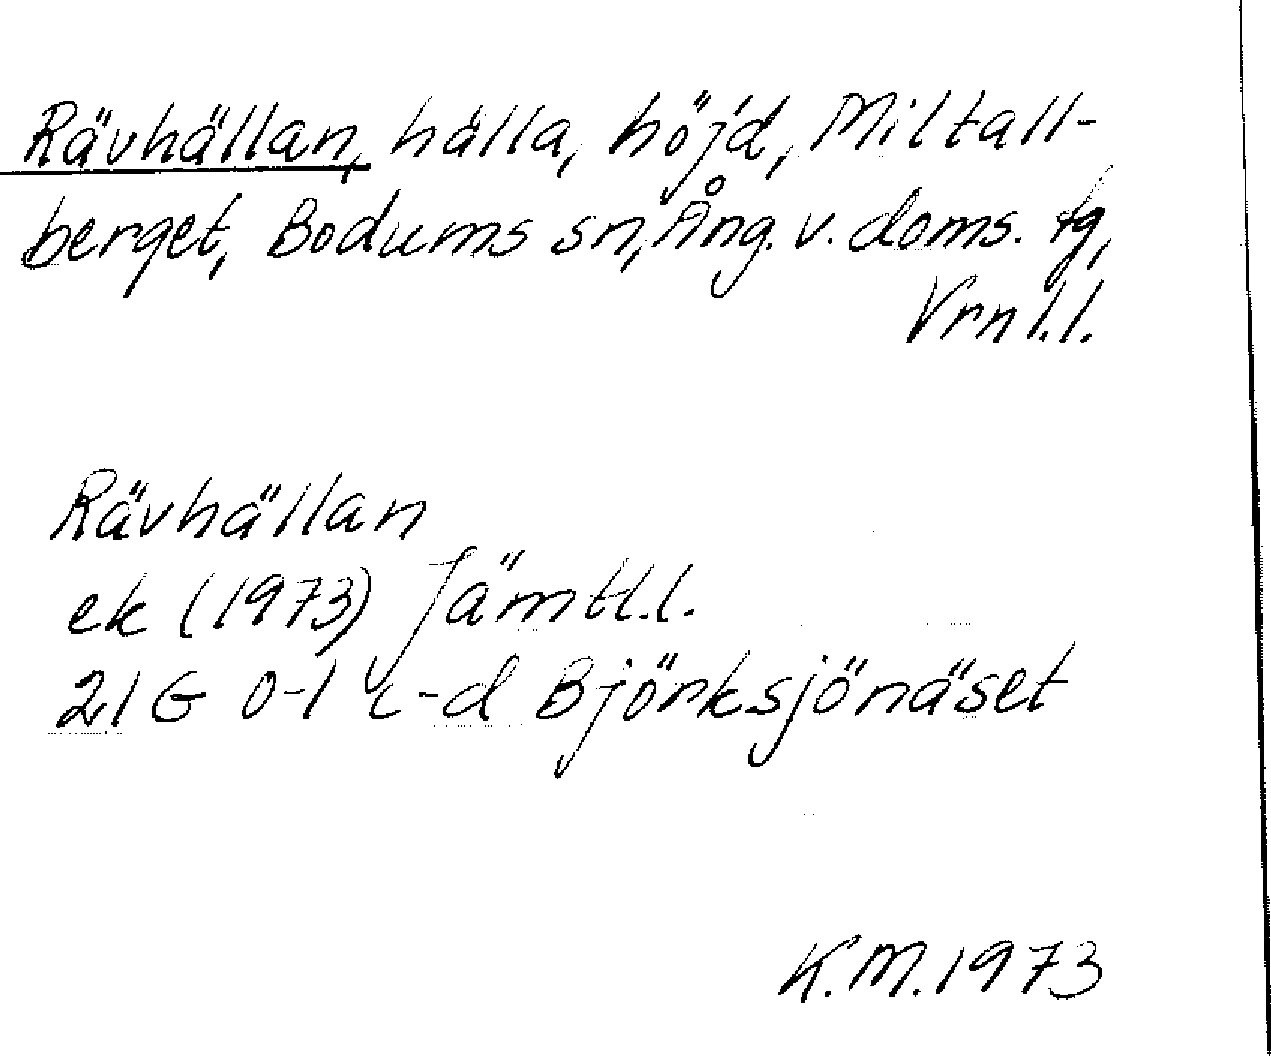 Rävhällan, hälla, höjd, Miltall-
berget, Bodums sn, Ång. v. doms. tg,
Vrnl.l.
Rävhällan
ek (1973) Jämtl.l.
21G 0-1 c-d Björksjönäset
K.M. 1973